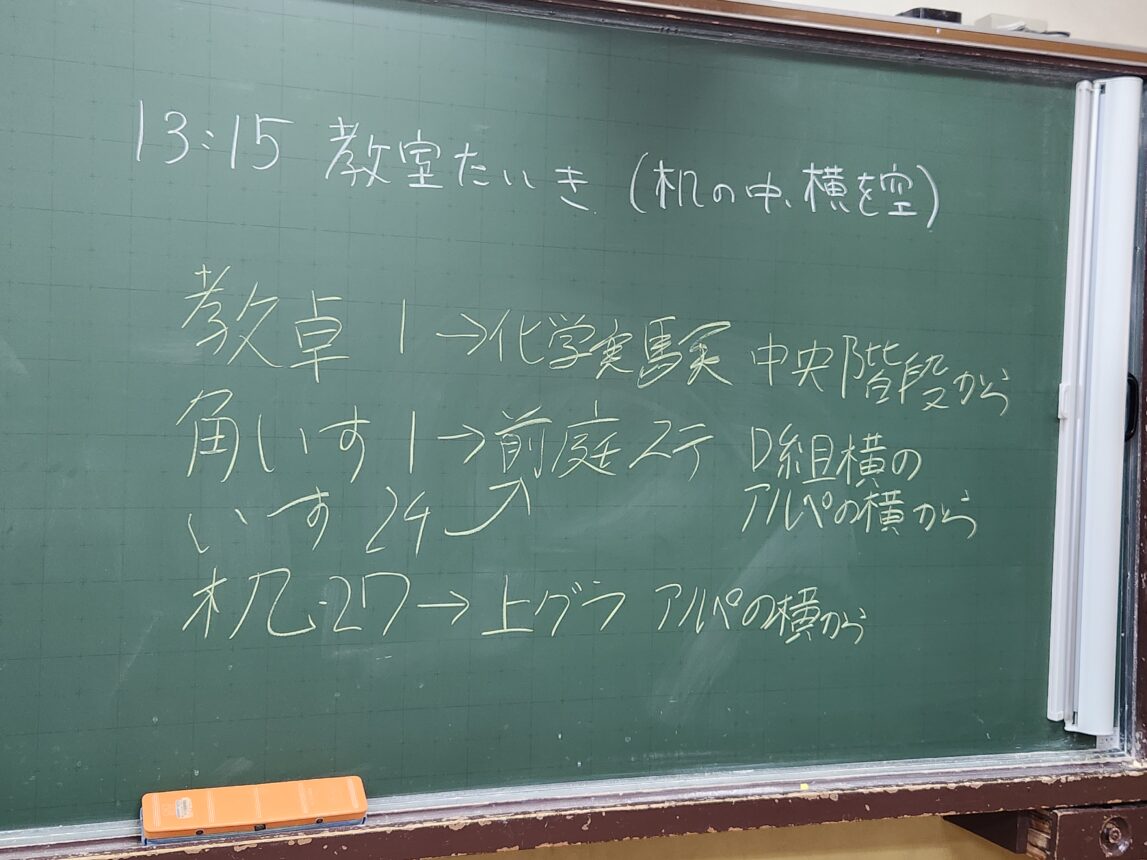 13:15 教室たいき (机の中、横を空)
教卓 1→化学実験 中央階段から
角いす1→前庭ステ D組横の
アルペの横から
いす24
机27→上グラ アルペの横から